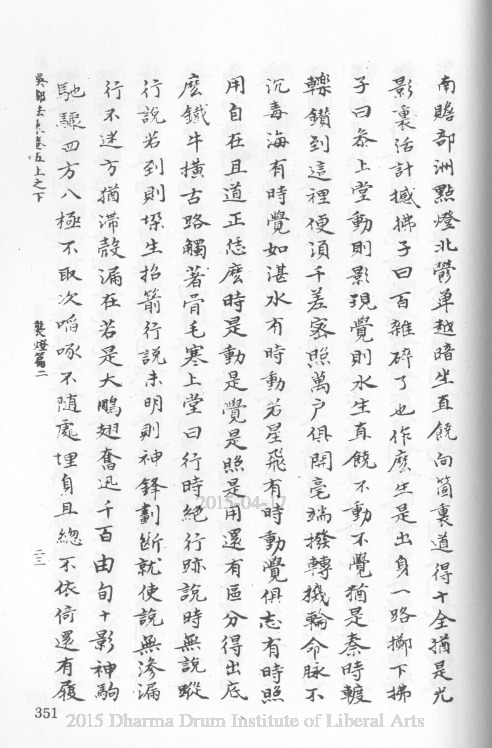 南贍部洲點燈北鬱單越暗坐直饒向箇裏道得十全猶是光
影裏活計撼拂子曰百雜碎了也作麽生是出身一路擲下拂
子曰參上堂動則影現覺則水生直饒不動不覺猶是秦時𨍏
轢鑽到這裡便須千差密照萬户俱開毫端撥轉機輪命脉不
沉毒海有時覺如湛水有時動若星飛有時動覺俱忘有時照
用自在且道正恁麽時是動是覺是照是用還有區分得出底
麽鐵牛横古路觸著骨毛寒上堂曰行時絶行跡說時無說蹤
行說若到則垜生招箭行説未明則神鋒劃斷就使說無滲漏
行不迷方猶滯殻漏在若是大鵬翅奮迅千百由旬十影神駒
馳驟四方八極不取次啗啄不隨處埋身且總不依倚還有履
卷五上之下
龔燈篇二
二三
351
2015-04-17
2015 Dharma Drum Institute of Liberal Arts